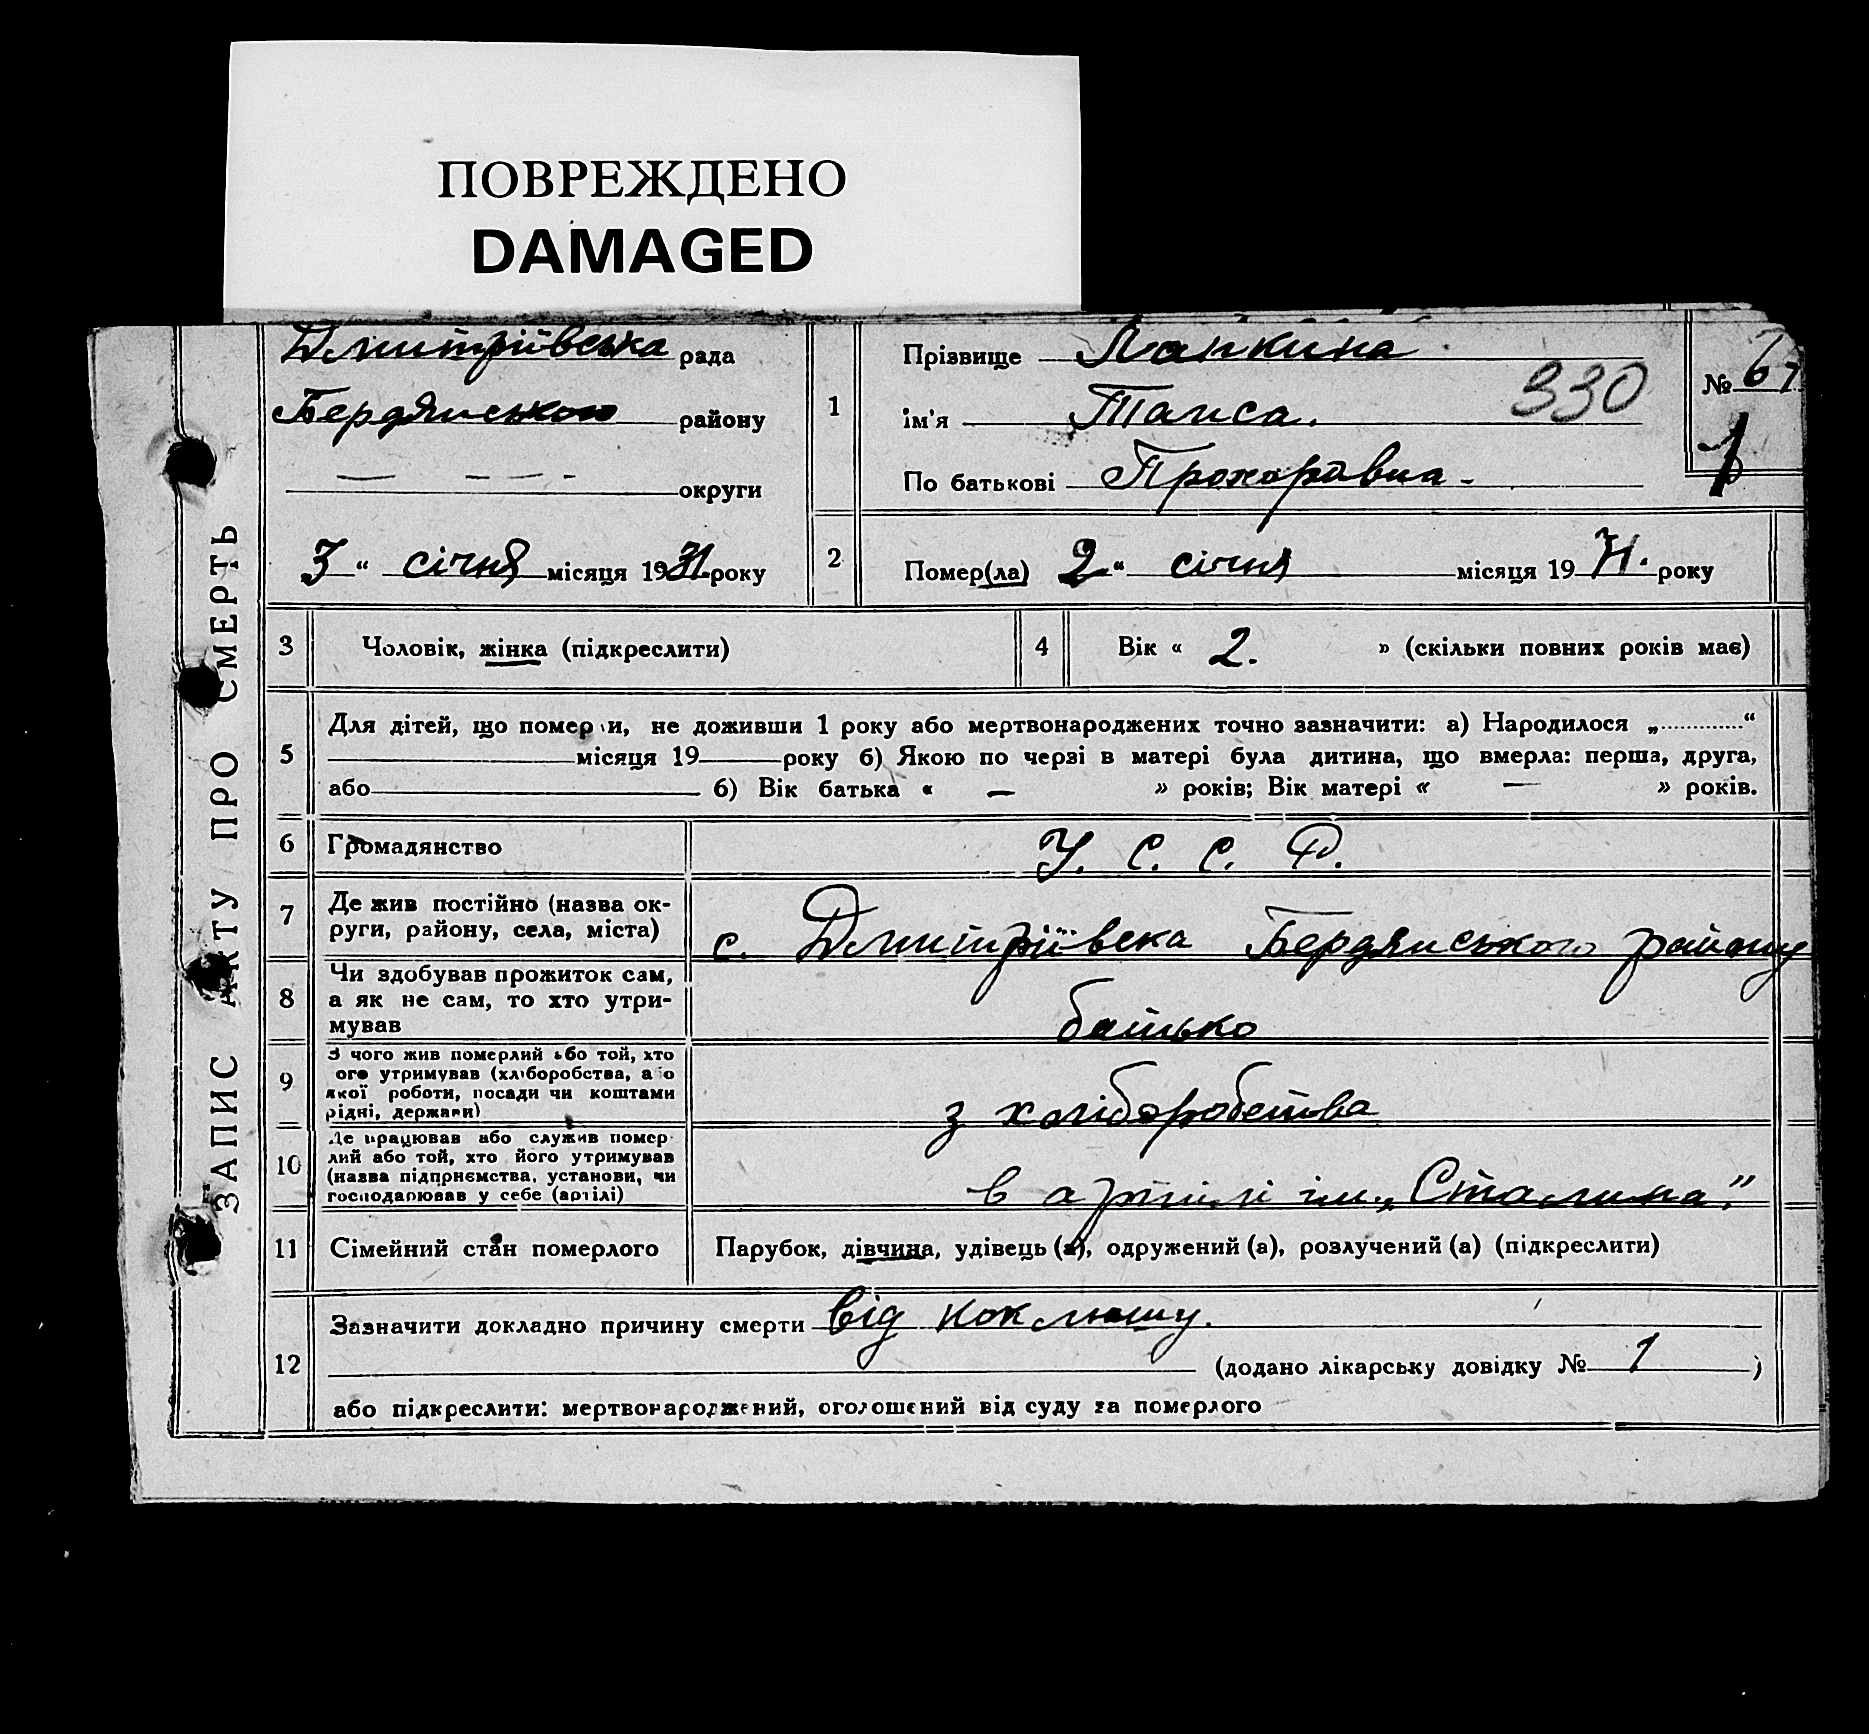 ПОВРЕЖДЕНО
DAMAGED
ЗАПИС АКТУ ПРО СМЕРТЬ
Дмитріівська рада
Бердянського району
— — — округи
3 “ січня місяця 1931 року
1
Прізвище Лапкина
ім'я Таиса.
По батькові Прохорівна
330
№
1
2
Помер(ла) 2 “ січня місяця 19 31. року
3 Чоловік, жінка (підкреслити)
4 Вік « 2. » (скільки повних років має)
5
Для дітей, що померли, не доживши 1 року або мертвонароджених точно зазначити: а) Народилося „ “
місяця 19 року б) Якою по черзі в матері була дитина, що вмерла: перша, друга,
або б) Вік батька « — » років; Вік матері « — » років.
6 Громадянство У. С. С. Р.
7
Де жив постійно (назва ок-
руги, району, села, міста)
с. Дмитріівека Бердянського району
8
Чи здобував прожиток сам,
а як не сам, то хто утри-
мував
батько
9
З чого жив померлий або той, хто
ого утримував (хліборобства, або
якої роботи, посади чи коштами
рідні, держави)
з хліборобства
10
Де працював або служив помер-
лий або той, хто його утримував
(назва підприємства, установи, чи
господарював у себе (артілі)
в артілі ім. „Сталина“
11 Сімейний стан померлого Парубок, дівчина, удівець (а), одружений (а), розлучений (а) (підкреслити)
12
Зазначити докладно причину смерти від коклюшу.
(додано лікарську довідку № 1 )
або підкреслити: мертвонароджений, оголошений від суду за померлого